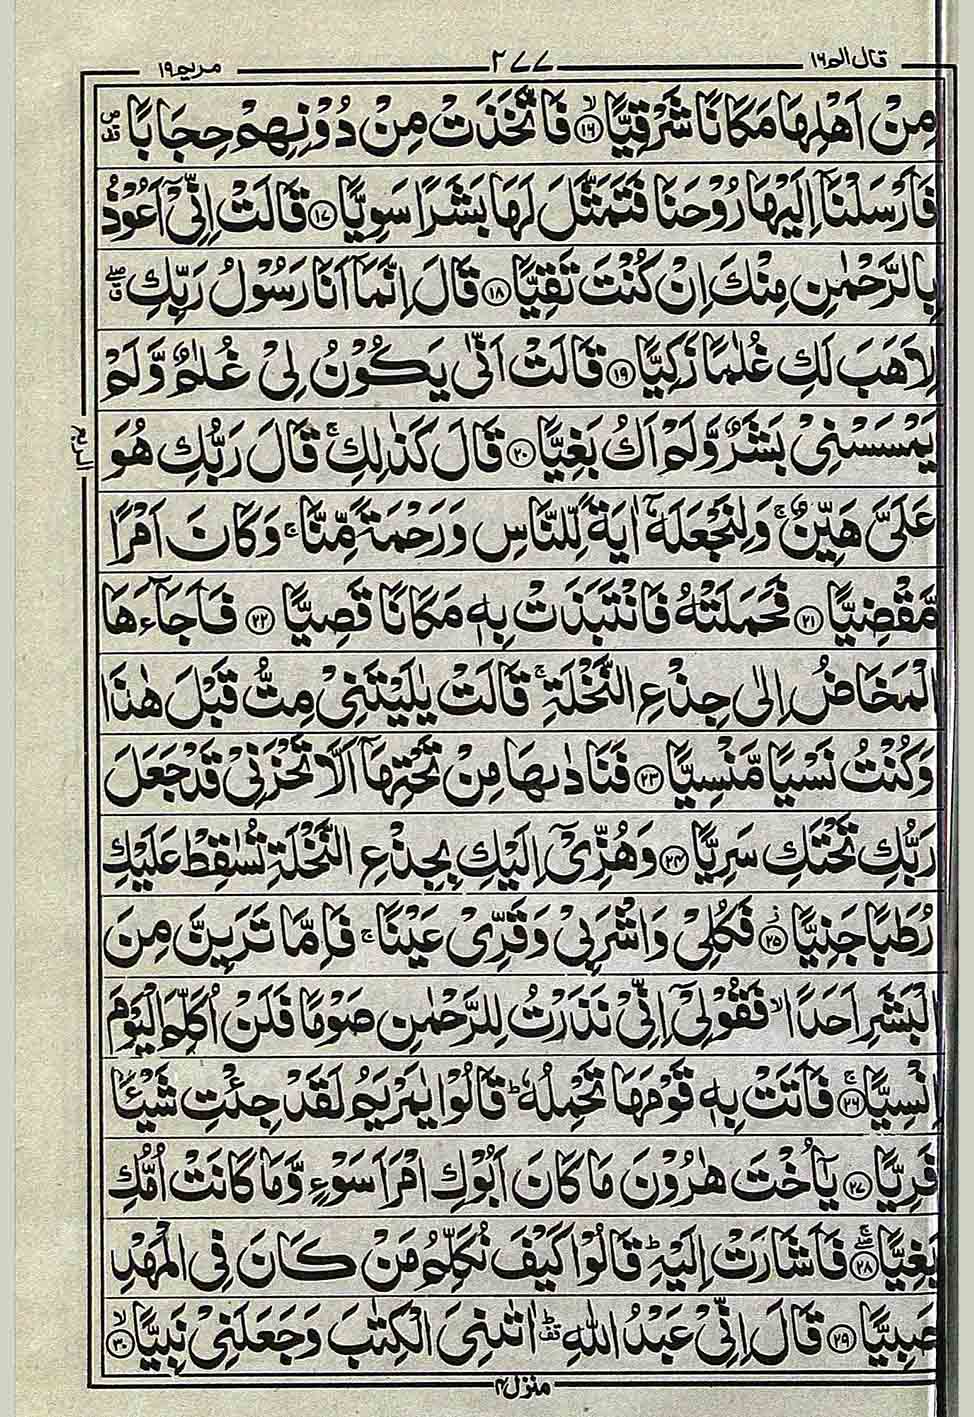 قال الم ١٦ ٢٧٧ مريم ١٩
مِنْ اَهْلِهَا مَكَانًا شَرْقِيًّا ۙ﴿١٦﴾ فَاتَّخَذَتْ مِنْ دُوْنِهِمْ حِجَابًا
فَاَرْسَلْنَاۤ اِلَيْهَا رُوْحَنَا فَتَمَثَّلَ لَهَا بَشَرًا سَوِيًّا ﴿١٧﴾ قَالَتْ اِنِّيْۤ اَعُوْذُ
بِالرَّحْمٰنِ مِنْكَ اِنْ كُنْتَ تَقِيًّا ﴿١٨﴾ قَالَ اِنَّمَاۤ اَنَا رَسُوْلُ رَبِّكِ
لِاَهَبَ لَكِ غُلٰمًا زَكِيًّا ﴿١٩﴾ قَالَتْ اَنّٰى يَكُوْنُ لِيْ غُلٰمٌ وَّلَمْ
يَمْسَسْنِيْ بَشَرٌ وَّلَمْ اَكُ بَغِيًّا ﴿٢٠﴾ قَالَ كَذٰلِكِ ۚ قَالَ رَبُّكِ هُوَ
عَلَيَّ هَيِّنٌ ۚ وَلِنَجْعَلَهٗۤ اٰيَةً لِّلنَّاسِ وَرَحْمَةً مِّنَّا ۚ وَكَانَ اَمْرًا
مَّقْضِيًّا ﴿٢١﴾ فَحَمَلَتْهُ فَانْتَبَذَتْ بِهٖ مَكَانًا قَصِيًّا ﴿٢٢﴾ فَاَجَآءَهَا
الْمَخَاضُ اِلٰى جِذْعِ النَّخْلَةِ ۚ قَالَتْ يٰلَيْتَنِيْ مِتُّ قَبْلَ هٰذَا
وَكُنْتُ نَسْيًا مَّنْسِيًّا ﴿٢٣﴾ فَنَادٰىهَا مِنْ تَحْتِهَاۤ اَلَّا تَحْزَنِيْ قَدْ جَعَلَ
رَبُّكِ تَحْتَكِ سَرِيًّا ﴿٢٤﴾ وَهُزِّيْۤ اِلَيْكِ بِجِذْعِ النَّخْلَةِ تُسٰقِطْ عَلَيْكِ
رُطَبًا جَنِيًّا ﴿٢٥﴾ فَكُلِيْ وَاشْرَبِيْ وَقَرِّيْ عَيْنًا ۚ فَاِمَّا تَرَيِنَّ مِنَ
الْبَشَرِ اَحَدًا ۙ فَقُوْلِيْۤ اِنِّيْ نَذَرْتُ لِلرَّحْمٰنِ صَوْمًا فَلَنْ اُكَلِّمَ الْيَوْمَ
اِنْسِيًّا ۚ﴿٢٦﴾ فَاَتَتْ بِهٖ قَوْمَهَا تَحْمِلُهٗ ؕ قَالُوْا يٰمَرْيَمُ لَقَدْ جِئْتِ شَيْـًٔا
فَرِيًّا ﴿٢٧﴾ يٰۤاُخْتَ هٰرُوْنَ مَا كَانَ اَبُوْكِ امْرَاَ سَوْءٍ وَّمَا كَانَتْ اُمُّكِ
بَغِيًّا ﴿٢٨﴾ فَاَشَارَتْ اِلَيْهِ ؕ قَالُوْا كَيْفَ نُكَلِّمُ مَنْ كَانَ فِي الْمَهْدِ
صَبِيًّا ﴿٢٩﴾ قَالَ اِنِّيْ عَبْدُ اللّٰهِ اٰتٰىنِيَ الْكِتٰبَ وَجَعَلَنِيْ نَبِيًّا ۙ﴿٣٠﴾
منزل ٤